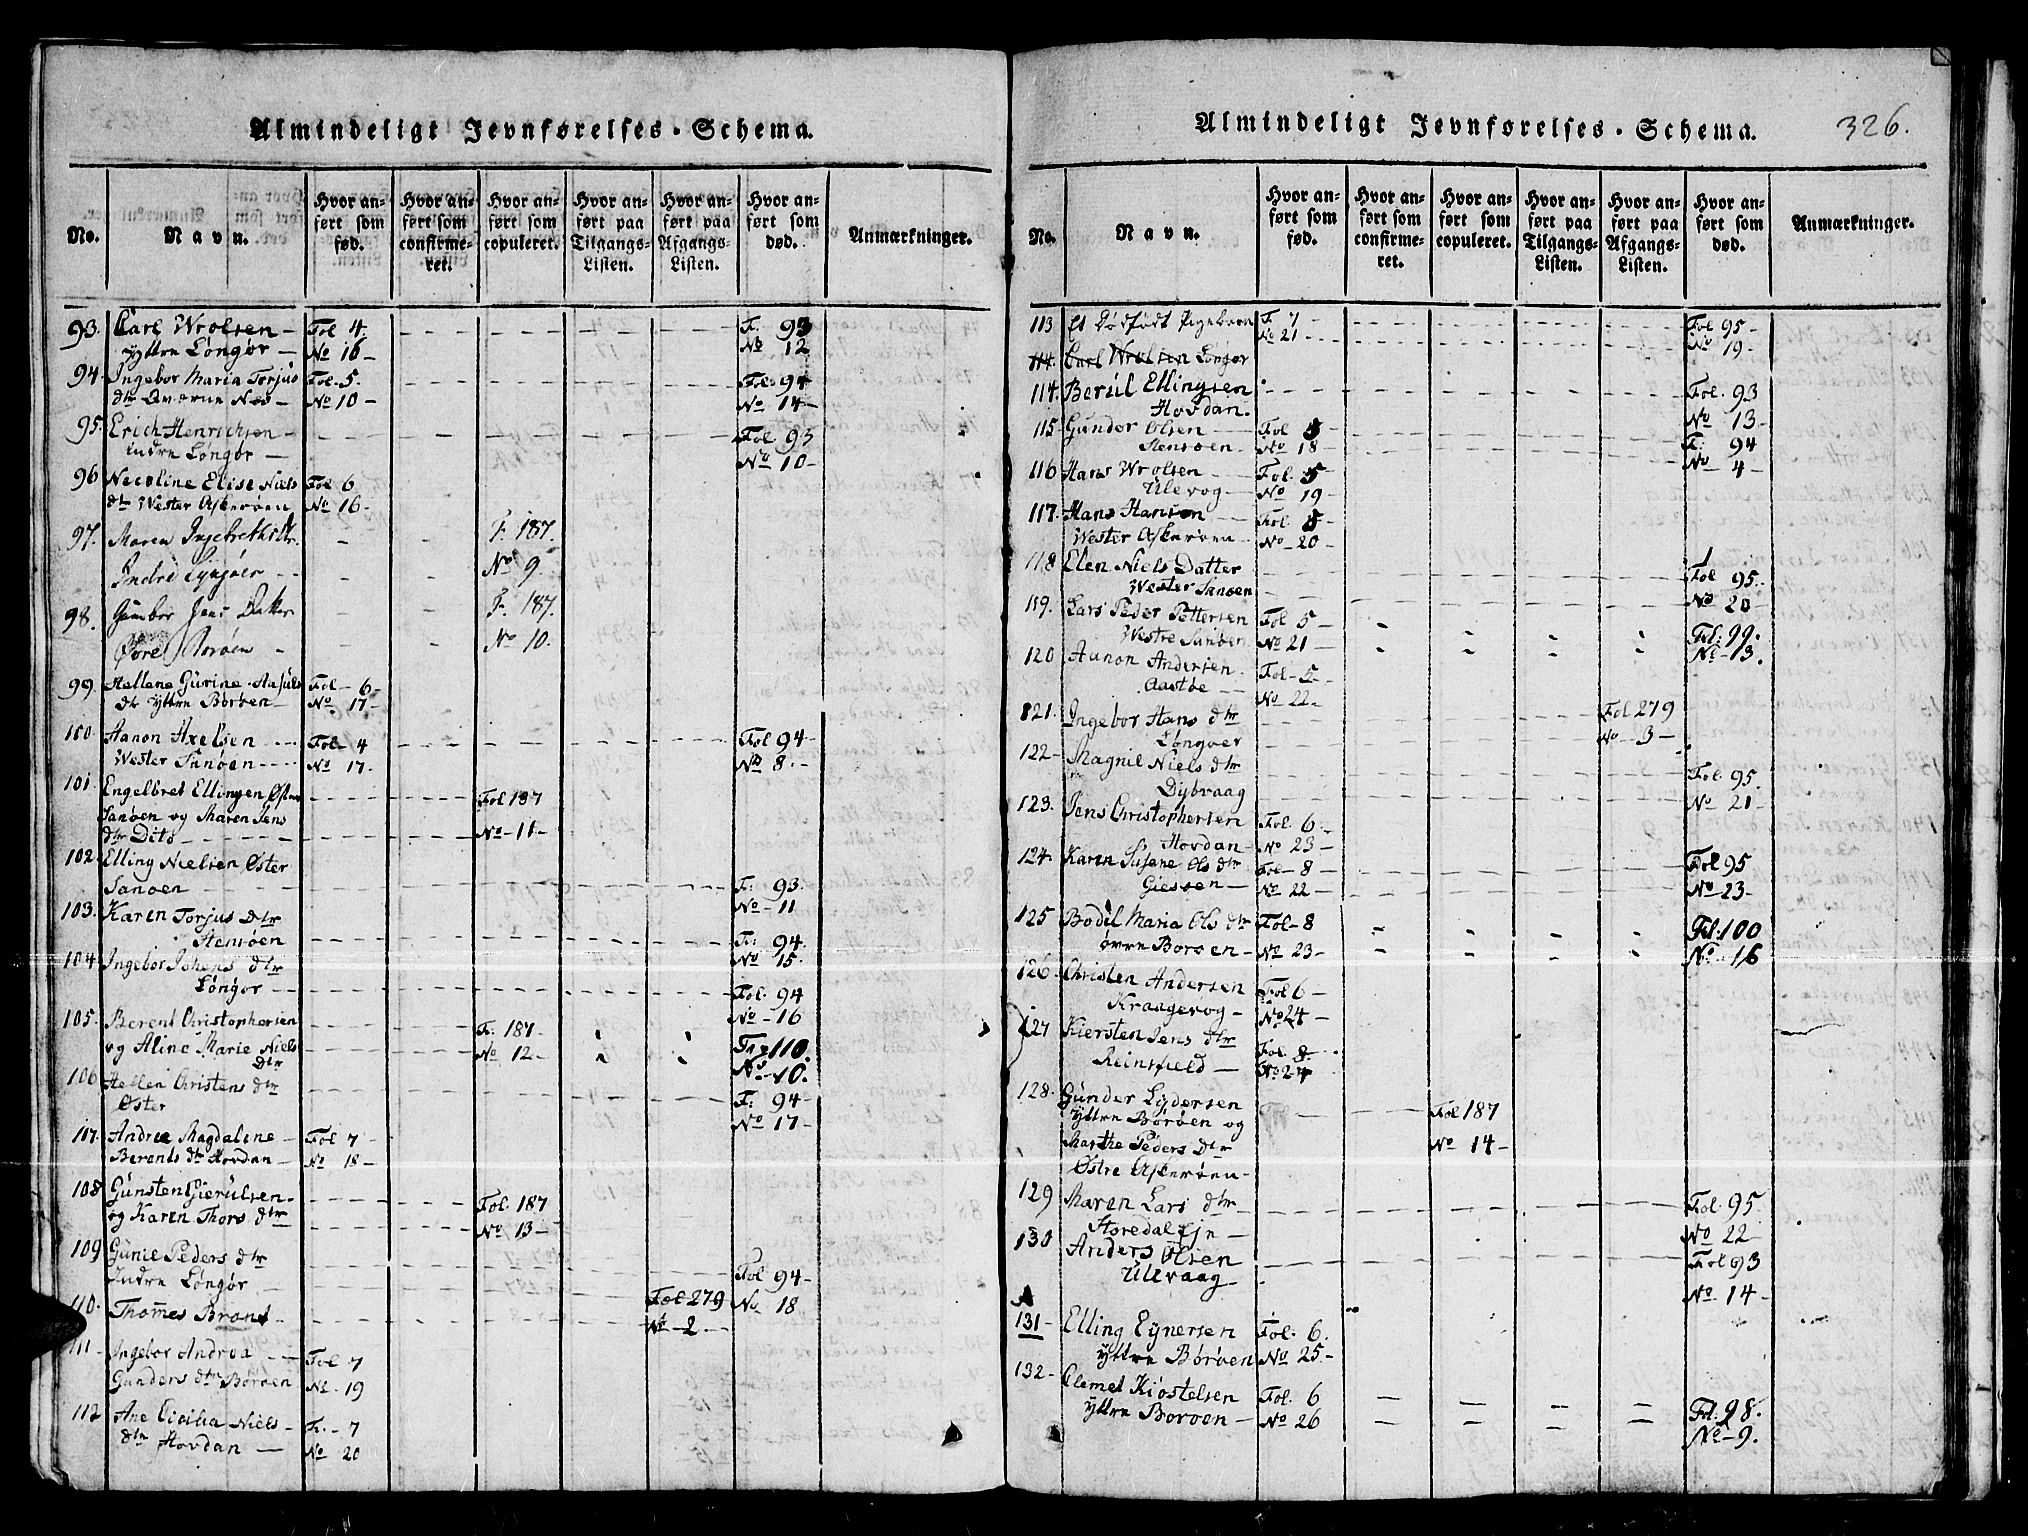 Almindeligt Jevnførelses-Schema.
No. Navn. Hvor anført som fød. Hvor anført som confirmeret. Hvor anført som copuleret. Hvor anført paa Tilgangs-Listen. Hvor anført paa Afgangs-Listen. Hvor anført som død. Anmærkninger.
93. Carl Wrolsen Fol 4 F. 93
yttre Løngør No 16 No 12
94. Ingebor Maria Torjus Fol 5. Fol. 94
dtr Næs No 10 No 14
95. Erich Henrichsen Fol 93
indre Løngør No 10
96 Nicoline Elise Niels Fol 6
dtr Wester Askerøen No 16
97. Maren Ingebrethsdtr. F. 187.
Indre Lyngøer No 9.
98. Gumbor Jens Datter F. 187.
Borøen No 10.
99. Hellene Gurine Fol 6
dtr yttre Børøen No 17
100. Aanon Axelsen Fol 4 Fol 94
Wester Sanøen No 17. No 8.
101. Engelbret Ellingsen Øster Fol 187
Sanøen og Maren Jens
dtr Dito No 11
102. Elling Nielsen Øster
Sanøen F. 93.
103. Karen Torjus Dtr No 11
Stensøen F: 94.
104 Ingebor Johans dtr No 15.
Løngør Fol. 94
105. Berent Christophersen No 16
og Aline Marie Niels F. 187 F. 110.
Dtr No 12 No 10.
106 Hellen Christens dtr F: 94
Øster No 17
117. Andrea Magdalene Fol 7
Berents dtr Hovdan No 18
108 Gunsten Gierulsen Fol. 187
og Karen Thors dtr No 13
109 Gunil Peders dtr
Indre Løngør Fol 94
110. Thomes Brant Fol 279 No 18
No 2
111 Ingebor Andrea Fol 7
Gunders dtr Børøen No 19
112 Ane Cicilia Niels F. 7
dtr Hovdan No 20
Almindeligt Jevnførelses-Schema. 326.
No. Navn. Hvor anført som fød. Hvor anført som confirmeret. Hvor anført som copuleret. Hvor anført paa Tilgangs-Listen. Hvor anført paa Afgangs-Listen. Hvor anført som død. Anmærkninger.
113 et Dødfødt Pigebarn F. 7 Fol 95
No 21 No 19
114. Carl Wrolsen Løngør
114. Berul Ellingsen Fol. 93
Hovdan. No 13
115 Gunder Olsen Fol 5 F. 94
Stensøen No 18 No 4
116 Hans Wrolsen Fol. 5
Ulevog No 19
117. Hans Hansen Fol. 5
Wester Askerøen No 20
118 Elen Niels Datter Fol 95.
Wester Sanøen No 20
119. Lars Peder Pettersen Fol 5 Fol: 99.
Westre Sanøen No 21 No 13.
120 Aanon Andersen Fol 5
Aastøe No 22
121. Ingebor Hans dtr Fol 279
Løngøer No 3
122 Magnil Niels dtr Fol. 95
Dybvaag No 21
123. Jens Christophersen Fol. 6
Hovdan No 23
124. Karen Susane Ols dtr Fol 8 Fol 95
Giesøen No 22 No 23
125 Bodil Maria Ols dtr Fol 8 Fol. 100
øvre Borøen No 23 No 16
126. Christen Andersen Fol 6
Kraagevog No 24
127 Kiersten Jens dtr Fol. 8
Reinsfield No 24
128. Gunder Lydersen Fol 187
yttre Børøen og No 14
Marthe Peders Dtr
Østre Askerøen
129 Maren Lars dtr Fol. 95
Storedal Ejn No 22
130 Anders Olsen Fol 93
Ulevaag No 14
131 Elling Eynersen Fol. 6.
yttre Børøen No 25
132 Clemet Kiøstelsen Fol. 6 Fol: 98.
yttre Borøen No 26 No 9.